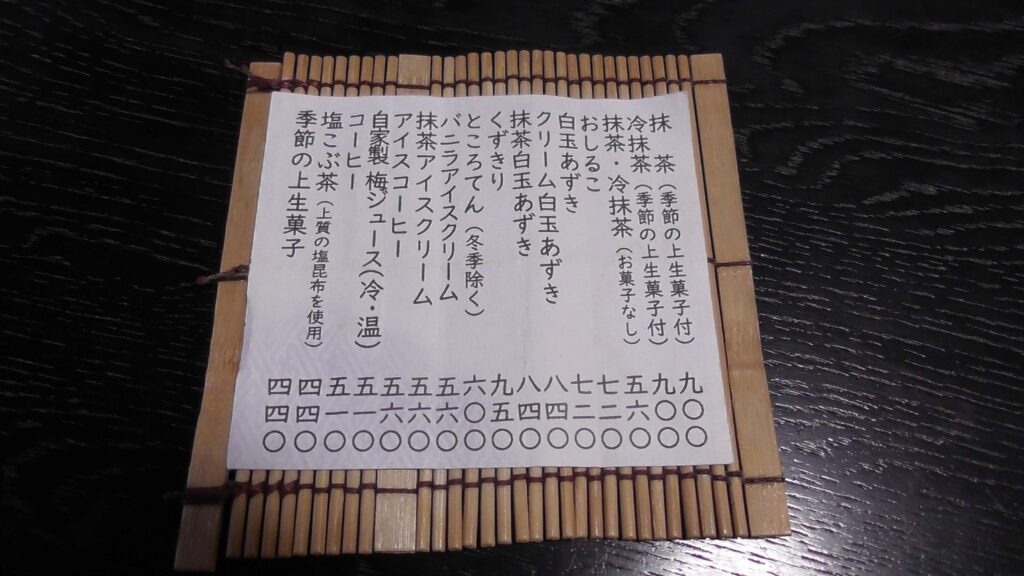 抹　茶（季節の上生菓子付） 九〇〇
冷抹茶（季節の上生菓子付） 九〇〇
抹茶・冷抹茶（お菓子なし） 五六〇
おしるこ 七二〇
白玉あずき 七二〇
クリーム白玉あずき 八四〇
抹茶白玉あずき 八四〇
くずきり 九五〇
ところてん（冬季除く） 六〇〇
バニラアイスクリーム 五六〇
抹茶アイスクリーム 五六〇
アイスコーヒー 五六〇
自家製 梅ジュース（冷・温） 五一〇
コーヒー 五一〇
塩こぶ茶（上質の塩昆布を使用） 四四〇
季節の上生菓子 四四〇